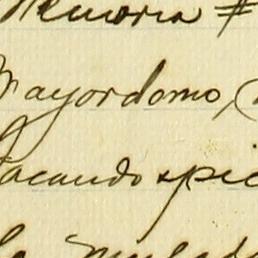 Memoria #
Mayordomo, (
Sacando spic
la mulada